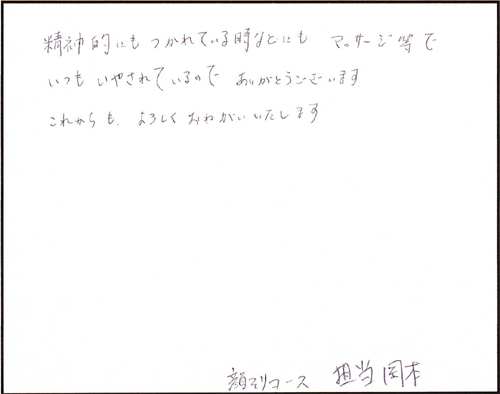 精神的にも つかれている時などにも マッサージ等で
いつも いやされているので ありがとうございます
これからも、よろしくおねがいいたします
顔そりコース 担当 岡本